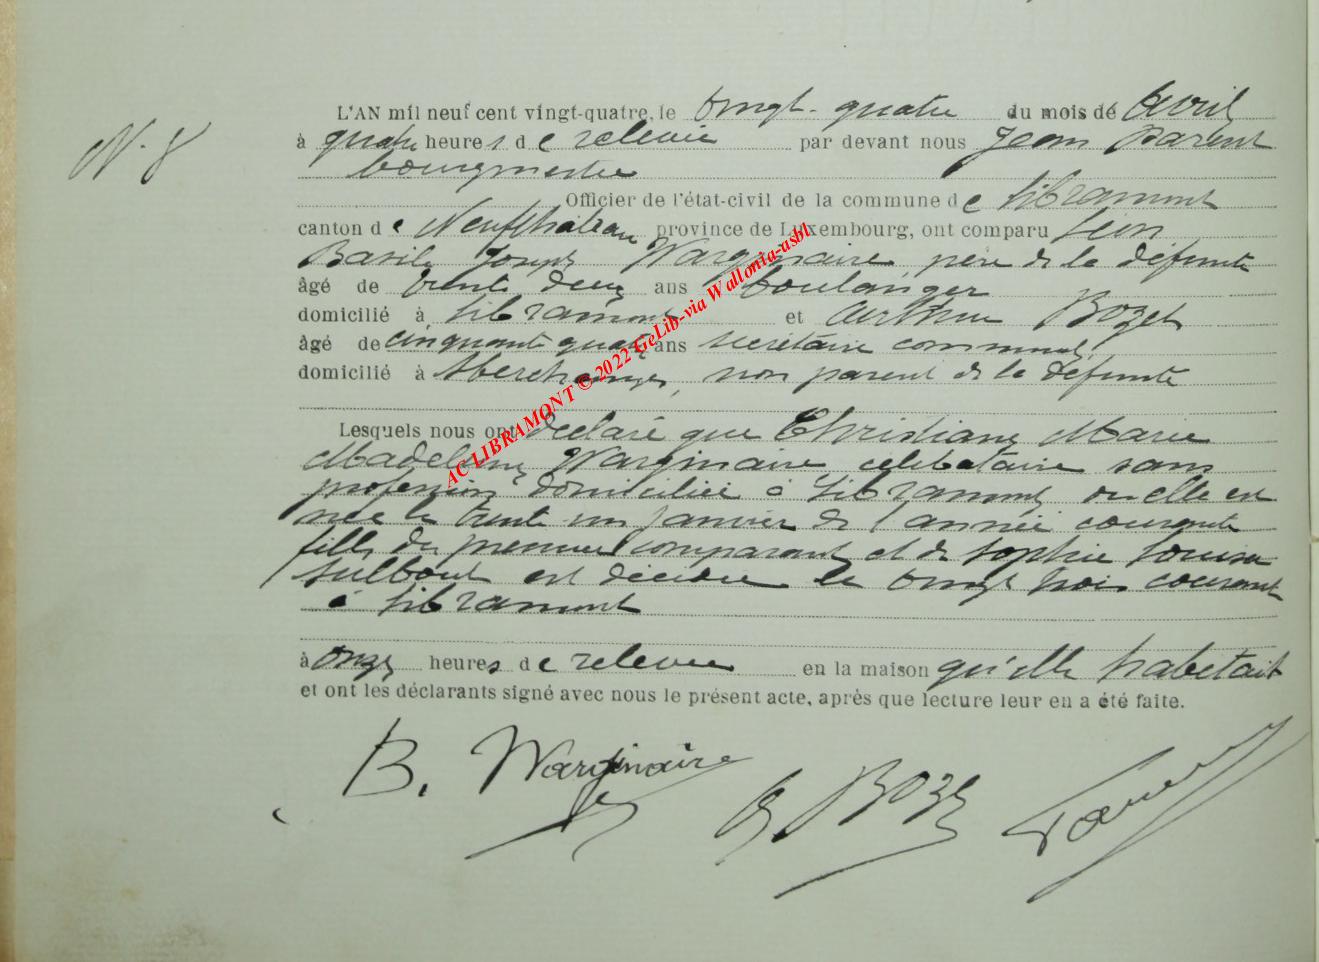 N. 8
L'AN mil neuf cent vingt-quatre, le vingt-quatre du mois de Avril
à quatre heures de relevée par devant nous Jean Parent
bourgmestre
Officier de l'état-civil de la commune de Libramont
canton de Neufchâteau province de Luxembourg, ont comparu
Basile Joseph Warginaire, père de la défunte
âgé de trente deux ans boulanger
domicilié à Libramont et Arthur Bozet
âgé de cinquante quatre ans secrétaire communal,
domicilié à non parent de la défunte
Lesquels nous ont declaré que Christiane Marie
Madeleine Warginaire célibataire sans
profession domiciliée à Libramont où elle est
née le trente un janvier de l'année courante
fille du premier comparant et de Sophie Louise
est décédée le vingt trois courant
à Libramont
à onze heures de relevée en la maison qu'elle habitait
et ont les déclarants signé avec nous le présent acte, après que lecture leur en a été faite.
B. Warginaire A. Bozet Parent
AC LIBRAMONT © 2022 GeLib-via Wallonia-asbl